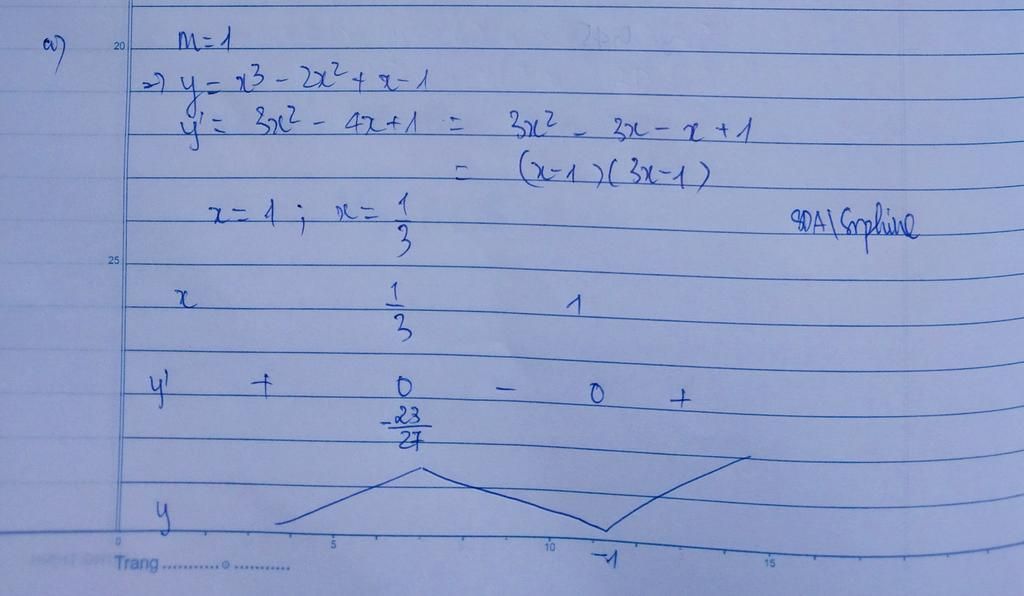 a) m=1
=> y = x³ - 2x² + x - 1
y' = 3x² - 4x + 1 = 3x² - 3x - x + 1
= (x-1)(3x-1)
x = 1 ; x = 1/3
x 1/3 1
y' + 0 - 0 +
-23/27
y
-1
20
25
0 5 10 15
Trang